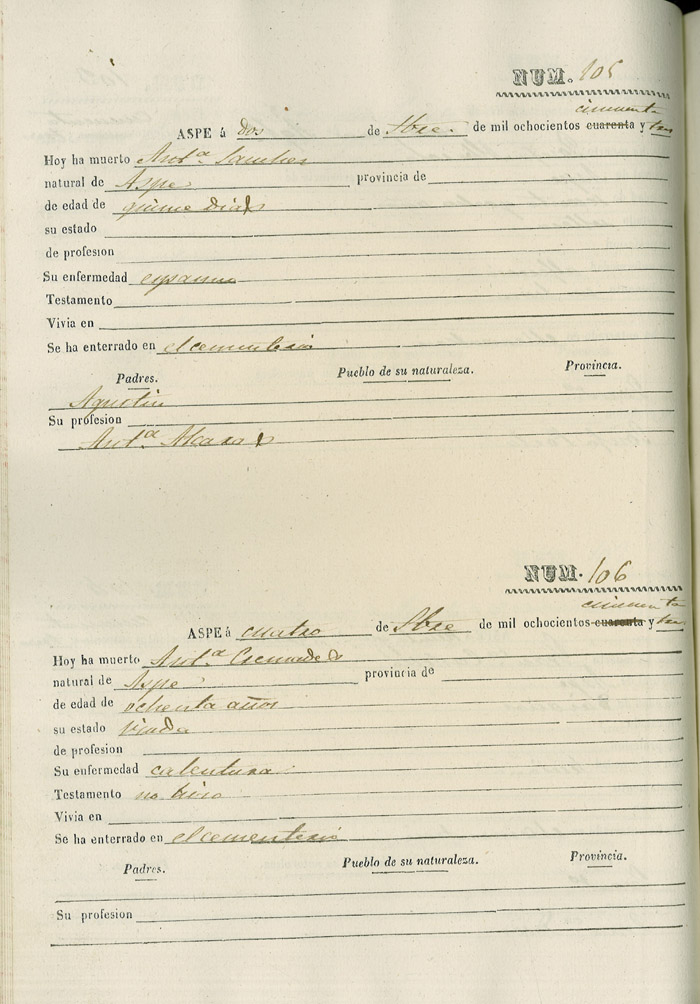 NUM. 105
cincuenta
ASPE á dos de Sbre. de mil ochocientos cuarenta y tres
Hoy ha muerto Antª Sanches
natural de Aspe provincia de
de edad de quince dias
su estado
de profesion
Su enfermedad espasmo
Testamento
Vivia en
Se ha enterrado en el cementerio
Padres. Pueblo de su naturaleza. Provincia.
Agustin
Su profesion
Antª Alcaras
NUM. 106
cincuenta
ASPE á cuatro de Sbre de mil ochocientos cuarenta y tres
Hoy ha muerto Antª
natural de Aspe provincia de
de edad de ochenta años
su estado Viuda
de profesion
Su enfermedad calentura
Testamento no hiso
Vivia en
Se ha enterrado en el cementerio
Padres. Pueblo de su naturaleza. Provincia.
Su profesion